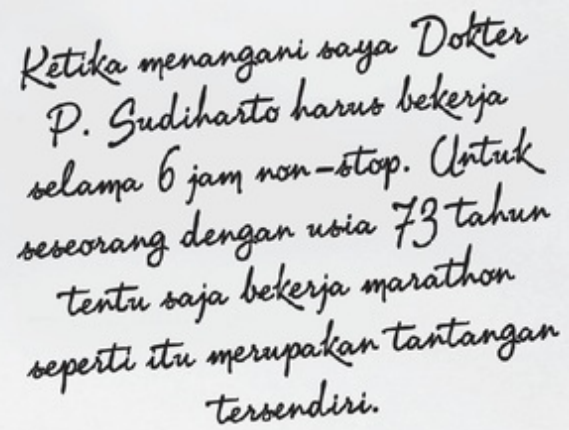 Ketika menangani saya Dokter
P. Sudiharto harus bekerja
selama 6 jam non-stop. Untuk
seseorang dengan usia 73 tahun
tentu saja bekerja marathon
seperti itu merupakan tantangan
tersendiri.